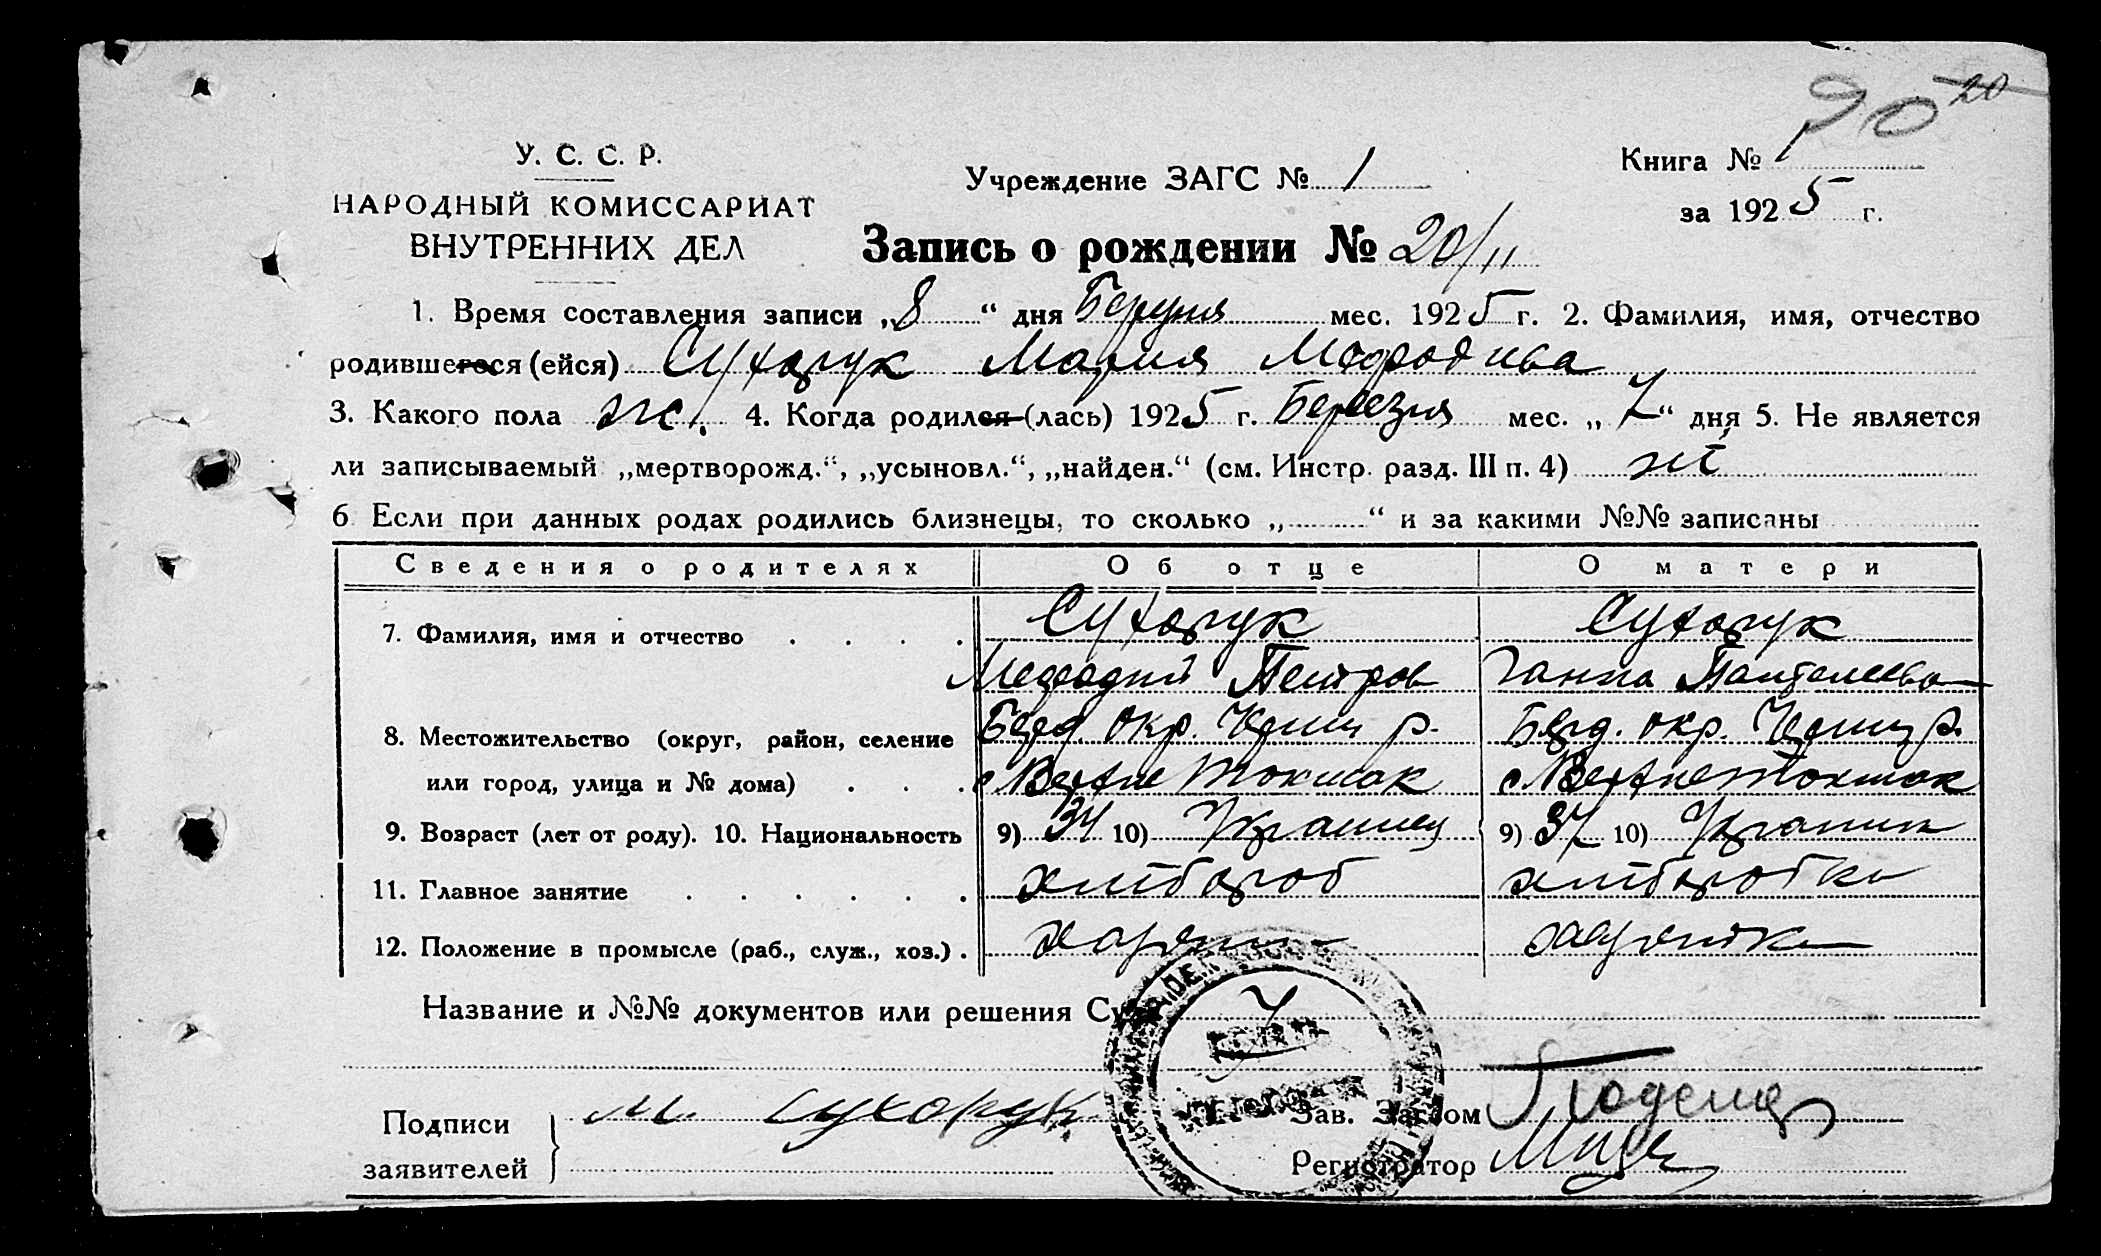 90 20
У. С. С. Р.
НАРОДНЫЙ КОМИССАРИАТ
ВНУТРЕННИХ ДЕЛ
Учреждение ЗАГС № 1
Книга № 1
за 1925 г.
Запись о рождении № 20/11
1. Время составления записи „8“ дня Березня мес. 1925 г. 2. Фамилия, имя, отчество
родившегося (ейся) Сухорук Мария Мефодиева
3. Какого пола ж. 4. Когда родился (лась) 1925 г. Березня мес. „7“ дня 5. Не является
ли записываемый „мертворожд.“, „усыновл.“, „найден.“ (см. Инстр. разд. III п. 4) ні
6 Если при данных родах родились близнецы, то сколько „ “ и за какими №№ записаны
Сведения о родителях Об отце О матери
7. Фамилия, имя и отчество Сухорук Сухорук
Мефодий Петров Ганна Пантелеева
8. Местожительство (округ, район, селение Берд. окр. Черниг р. Берд. окр. Черниг р.
или город, улица и № дома) с Верхне Токмак с Верхне Токмак
9. Возраст (лет от роду). 10. Национальность 9) 34 10) Украинец 9) 34 10) Украин
11. Главное занятие хлібороб хліборобка
12. Положение в промысле (раб., служ., хоз.)
Название и №№ документов или решения Суда
Подписи
заявителей
М. Сухорук
Зав. Загсом
Регистратор